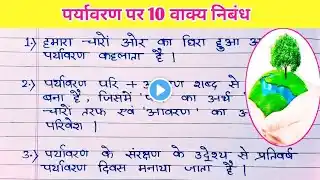 पर्यावरण पर 10 वाक्य निबंध
1.) हमारा चारो ओर का घिरा हुआ
पर्यावरण कहलाता है ।
2.) पर्यावरण परि + शब्द से
बना है , जिसमें का अर्थ
चारों तरफ एवं 'आवरण' का
परिवेश ।
3.) पर्यावरण के संरक्षण के उद्देश्य से प्रतिवर्ष
पर्यावरण दिवस मनाया जाता है ।